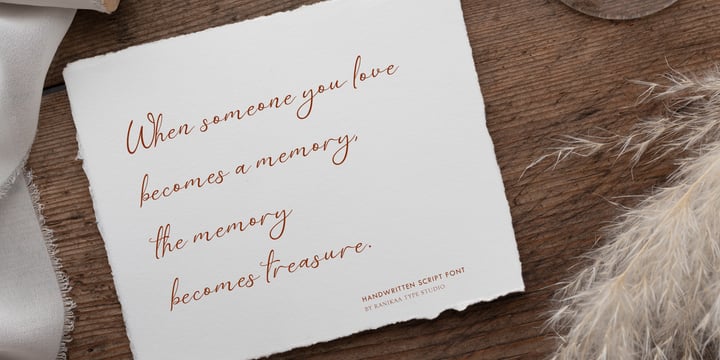 When someone you love
becomes a memory,
the memory
becomes treasure.
HANDWRITTEN SCRIPT FONT
BY KANIKAA TYPE STUDIO